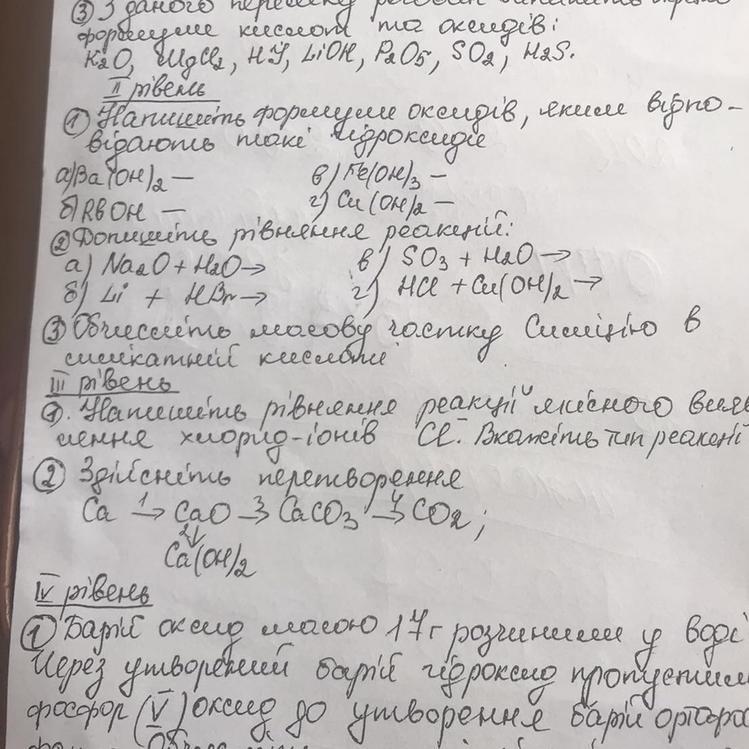 ③ З даного переліку
формули кислот та оксидів:
K2O, MgCl2, HI, LiOH, P2O5, SO2, H2S.
II рівень
① Напишіть формули оксидів, яким відпо-
відають такі гідроксиди
а) Ba(OH)2 — в) Fe(OH)3 —
б) RBOH — г) Cu(OH)2 —
② Допишіть рівняння реакцій:
а) Na2O + H2O → в) SO3 + H2O →
б) Li + HBr → г) HCl + Cu(OH)2 →
③ Обчисліть масову частку Силіцію в
силікатній кислоті
III рівень
①. Напишіть рівняння реакції якісного вияв
лення хлорид-іонів Cl⁻. Вкажіть тип реакції
② Здійсніть перетворення
Ca 1→ CaO 3→ CaCO3 4→ CO2;
2↓
Ca(OH)2
IV рівень
① Барій оксид масою 17г розчинили у воді
Через утворений барій гідроксид пропустили
фосфор (V) оксид до утворення барій ортофос